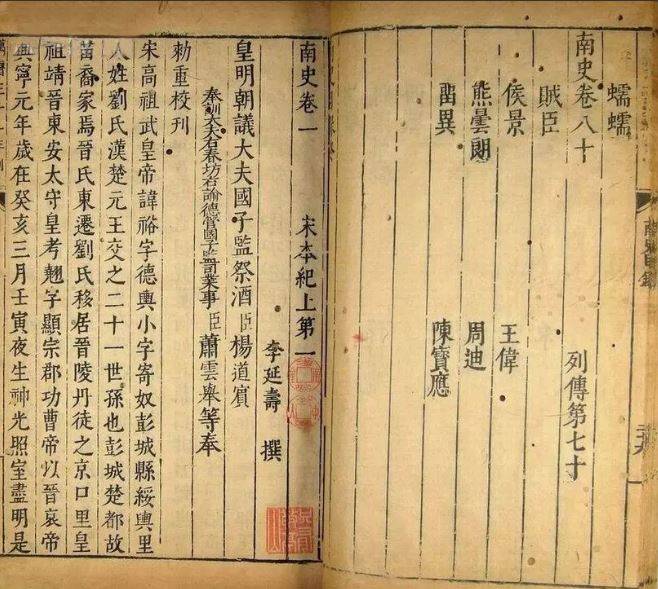 蠕蠕
南史卷八十　列傳第七十
賊臣
侯景　王偉
熊曇朗　周迪
畱異　陳寶應
南史目錄
南史卷一　宋本紀上第一
李延壽　撰
皇明朝議大夫國子監祭酒臣楊道賓
奉訓大夫右春坊右諭德管國子監司業事臣蕭雲舉等奉
勑重校刊
宋高祖武皇帝諱裕字德輿小字寄奴彭城縣綏輿里
人姓劉氏漢楚元王交之二十一世孫也彭城楚都故
苗裔家焉晉氏東遷劉氏移居晉陵丹徒之京口里皇
祖靖晉東安太守皇考翹字顯宗郡功曹帝以晉哀帝
興寧元年歲在癸亥三月壬寅夜生神光照室盡明是